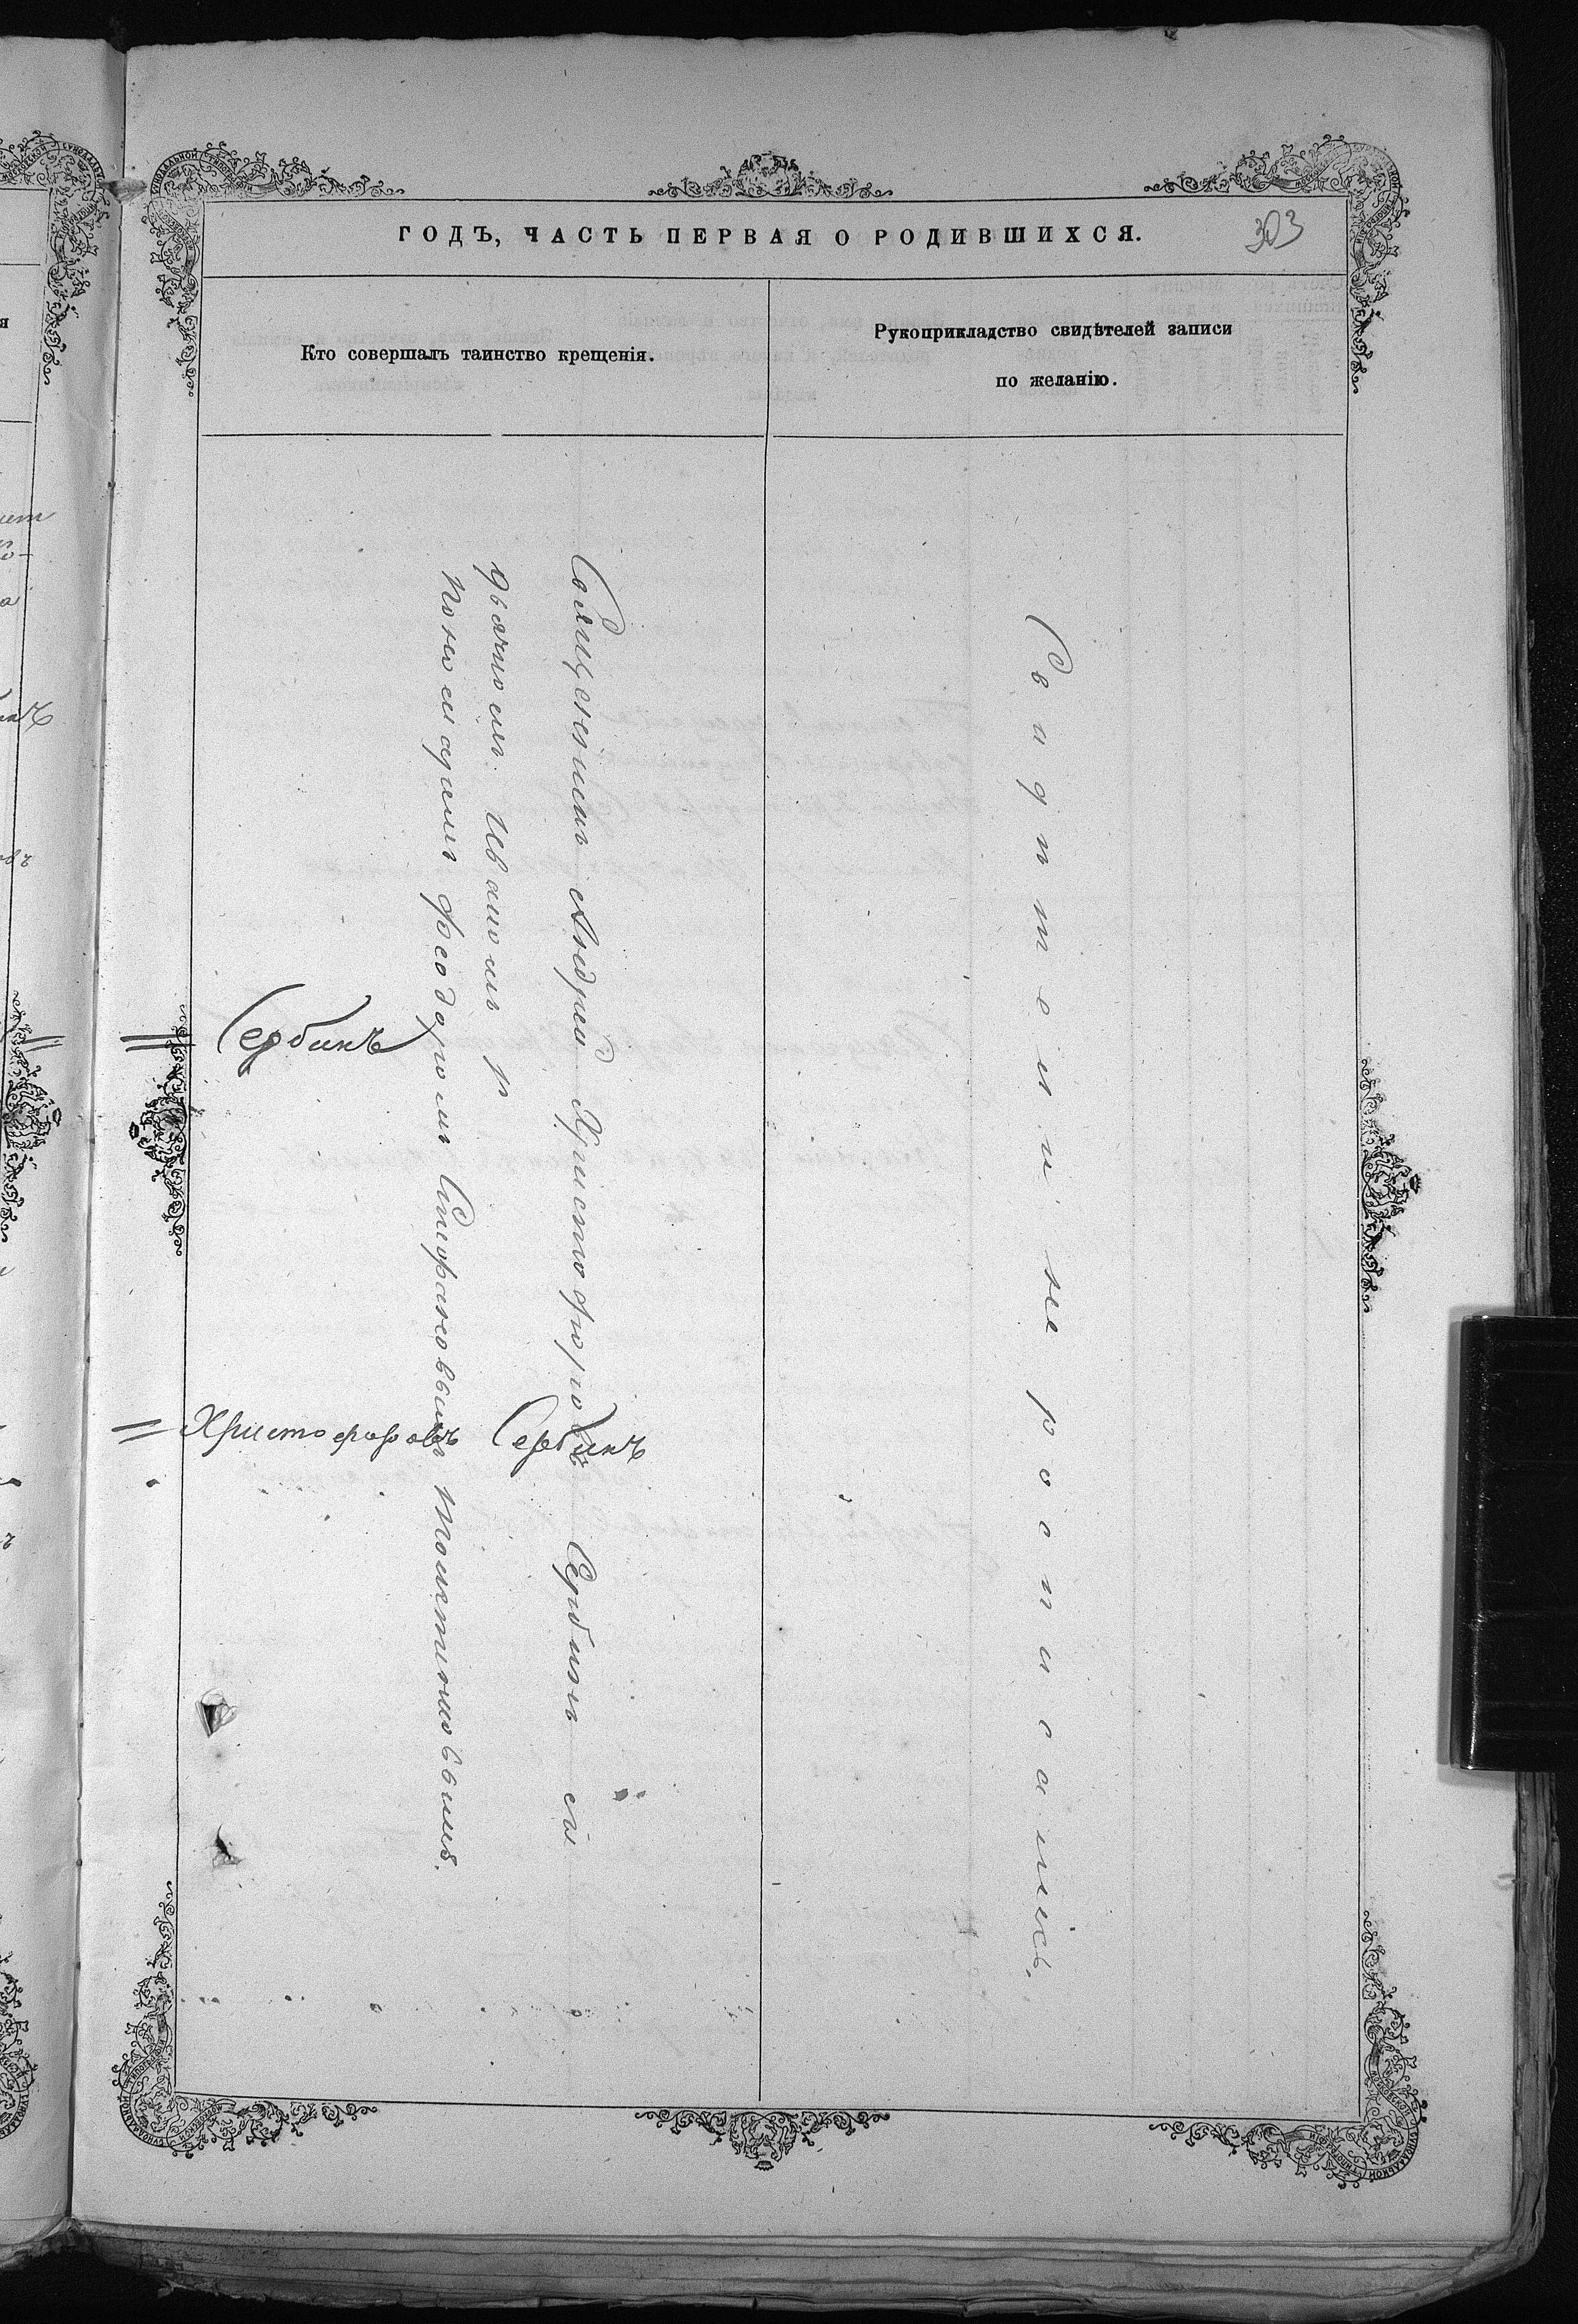 ГОДЪ, ЧАСТЬ ПЕРВАЯ О РОДИВШИХСЯ.
303
Кто совершалъ таинство крещенія.
Рукоприкладство свидѣтелей записи
по желанію.
Священникъ Андрей Христофоровъ Сербинъ съ
дьячкомъ Иваномъ
пономаремъ Феодоромъ Стефановымъ
Сербинъ
Христофоровъ Сербинъ
не росписались.